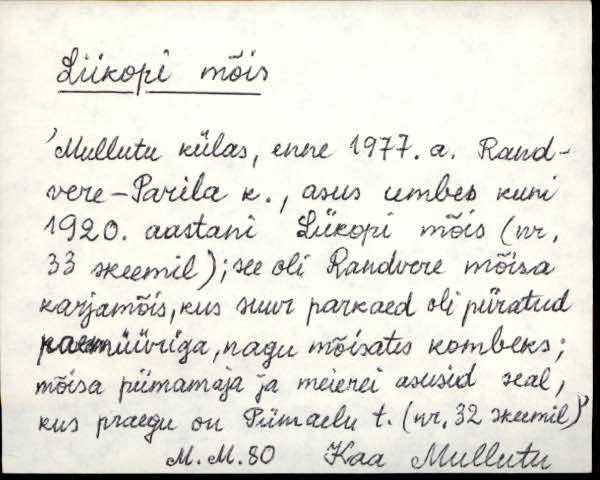 Liikopi mõis
'Mullutu külas, enne 1977. a. Rand-
vere-Parila k., asus umbes kuni
1920. aastani Liikopi mõis (nr.
33 skeemil); see oli Randvere mõisa
karjamõis, kus suur parkaed oli piiratud
paemüüriga, nagu mõisates kombeks;
mõisa piimamaja ja meierei asusid seal,
kus praegu on Piimaelu t. (nr. 32 skeemil)'
M. M. 80 Kaa Mullutu